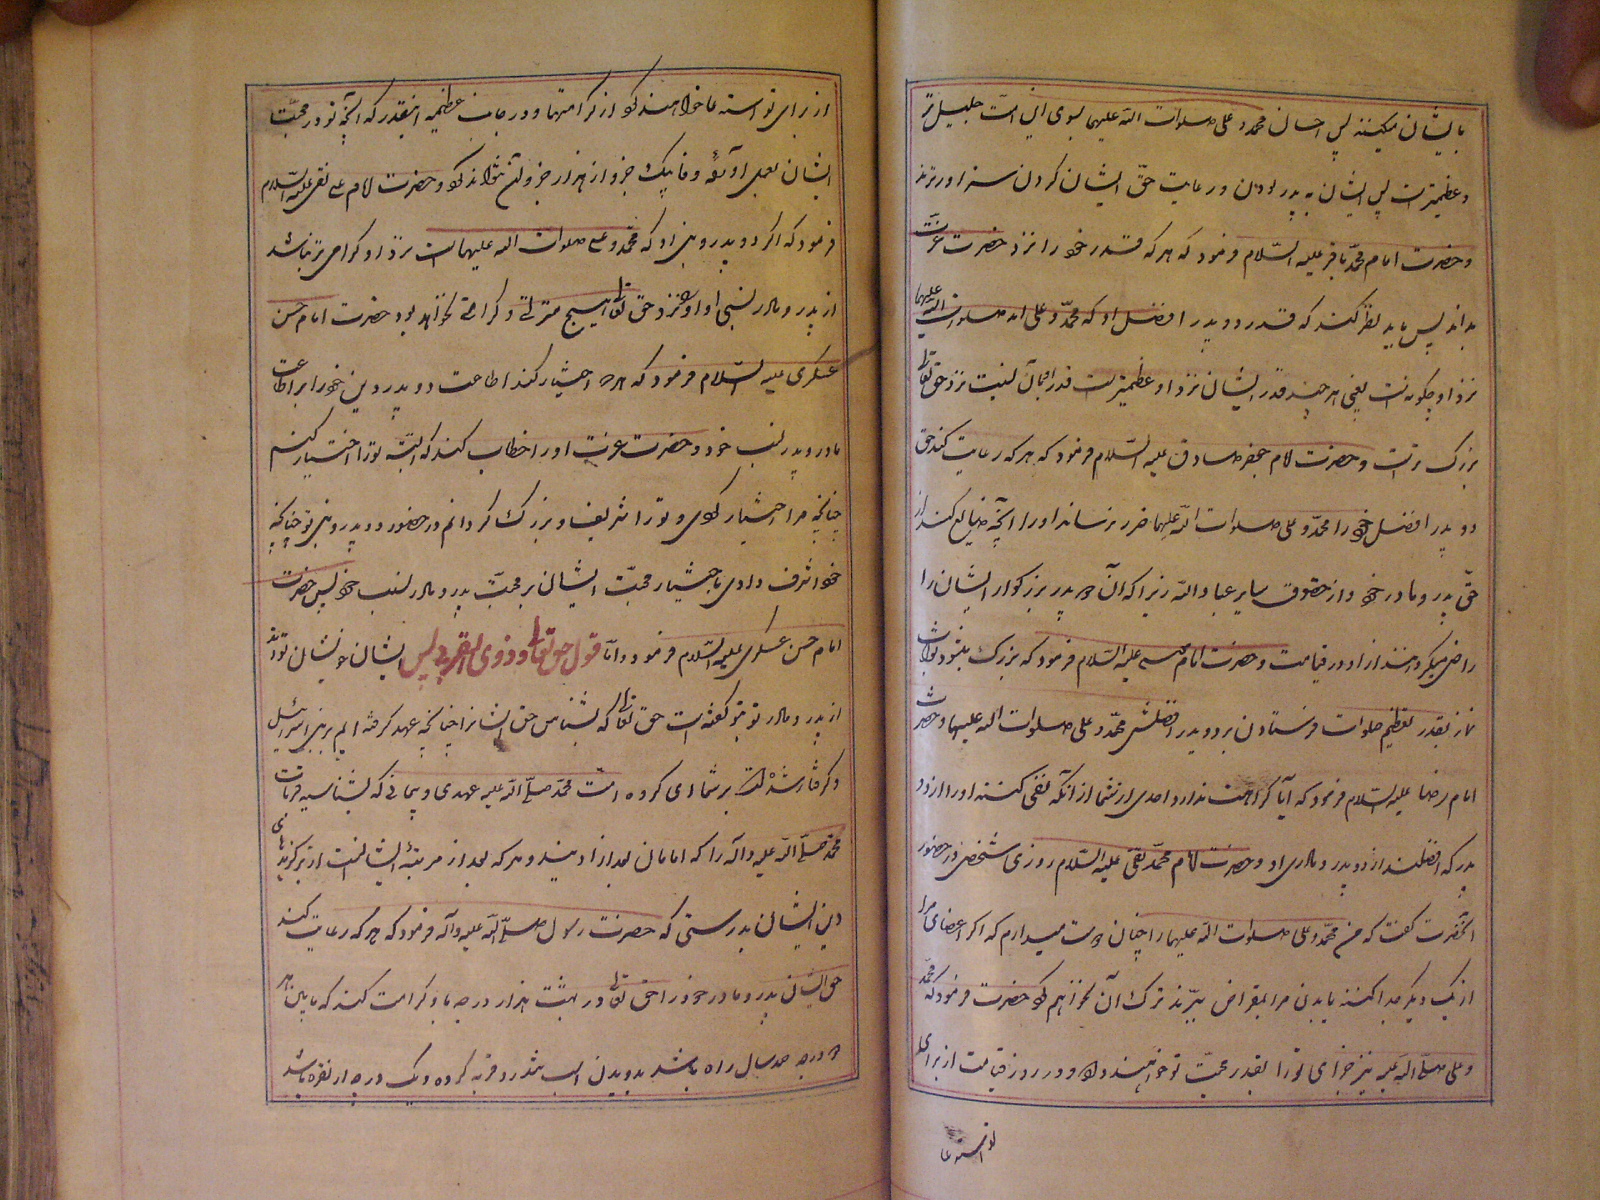 بایشان میکنند پس احسان محمد و علی صلوات الله علیهما بسوی این امت جلیل تر
و عظیمتر است پس ایشان به پدر بودن و رعایت حق ایشان کردن سزاوارترند
و حضرت امام محمد باقر علیه السلام فرمود که هر که قدر خود را نزد حضرت عزت
بداند پس باید نظر کند که قدر دو پدر افضل او که محمد و علی اند صلوات الله علیهما
نزد او چگونه است یعنی هر چند قدر ایشان نزد او عظیمتر است قدر آن نسبت نزد حق تعالی
بزرگ تر است و حضرت امام جعفر صادق علیه السلام فرمود که هر که رعایت کند حق
دو پدر افضل خود را محمد و علی صلوات الله علیهما ضرر نرساند او را آنچه ضایع کند از
حق پدر و مادر خود و از حقوق سایر عباد الله زیرا که آن دو پدر بزرگوار ایشان را
راضی میگردانند از او در قیامت و حضرت امام موسی علیه السلام فرمود که بزرگ میشود ثواب
نماز بقدر تعظیم صلوات فرستادن بر دو پدر افضلش محمد و علی صلوات الله علیهما و حضرت
امام رضا علیه السلام فرمود که آیا کراهت ندارد احدی از شما از آنکه نفی کنند او را از دو
پدر که افضلند از دو پدر و مادری او و حضرت امام محمد تقی علیه السلام روزی شخصی در حضور
آنحضرت گفت که من محمد و علی صلوات الله علیهما را چنان دوست میدارم که اگر اعضای مرا
از یک دیگر جدا کنند یا بدن مرا بمقراض ببرند ترک آن نخواهم کرد حضرت فرمود که محمد
و علی صلی الله علیه نیز جزای تو را بقدر محبت تو خواهند داد و در روز قیامت از برای
تو استدعا
از برای تو استدعا خواهند کرد از کرامتها و درجات عظیمه اینقدر که آنچه تو در محبت
ایشان بعمل آوری وفا بیک جزو از هزار جزو آن نتواند کرد و حضرت امام علی نقی علیه السلام
فرمود که اگر دو پدر دینی او که محمد و علی صلوات الله علیهما است نزد او گرامی تر نباشد
از پدر و مادر نسبی او او را نزد حق تعالی هیچ منزلتی و کرامتی نخواهد بود حضرت امام حسن
عسکری علیه السلام فرمود که هر که اختیار کند اطاعت دو پدر دین خود را بر اطاعت
مادر و پدر نسب خود حضرت عزت او را خطاب کند که البته تو را اختیار کنم
چنانچه مرا اختیار کردی و تو را شریف و بزرگ گردانم در حضور دو پدر دینی تو چنانچه
خود را شرف دادی باختیار محبت ایشان بر محبت پدر و مادر نسب خود پس حضرت
امام حسن عسکری علیه السلام فرمود و اما قول حق تعالی و ذوی القربی پس ایشان خویشان تو اند
از پدر و مادر تو بتو گفته است حق تعالی که بشناس حق ایشانرا چنانچه عهد کرفته ایم بر بنی اسرائیل
و گرفتار شده است بر شما ای گروه امت محمد صلی الله علیه عهدی و پیمانی که بشناسید قرابات
محمد صلی الله علیه و آله را که امامان بعد از اویند و هر که بعد از مرتبۀ ایشانست از برگزیدهای
دین ایشان بدرستی که حضرت رسول صلی الله علیه و آله فرمود که هر که رعایت کند
حق ایشان پدر و مادر خود را حق تعالی در بهشت هزار درجه باو کرامت کند که ما بین هر
دو درجه صد سال راه باشد بدویدن اسب تندرو فربه کرده و یک درجه از نقره باشد